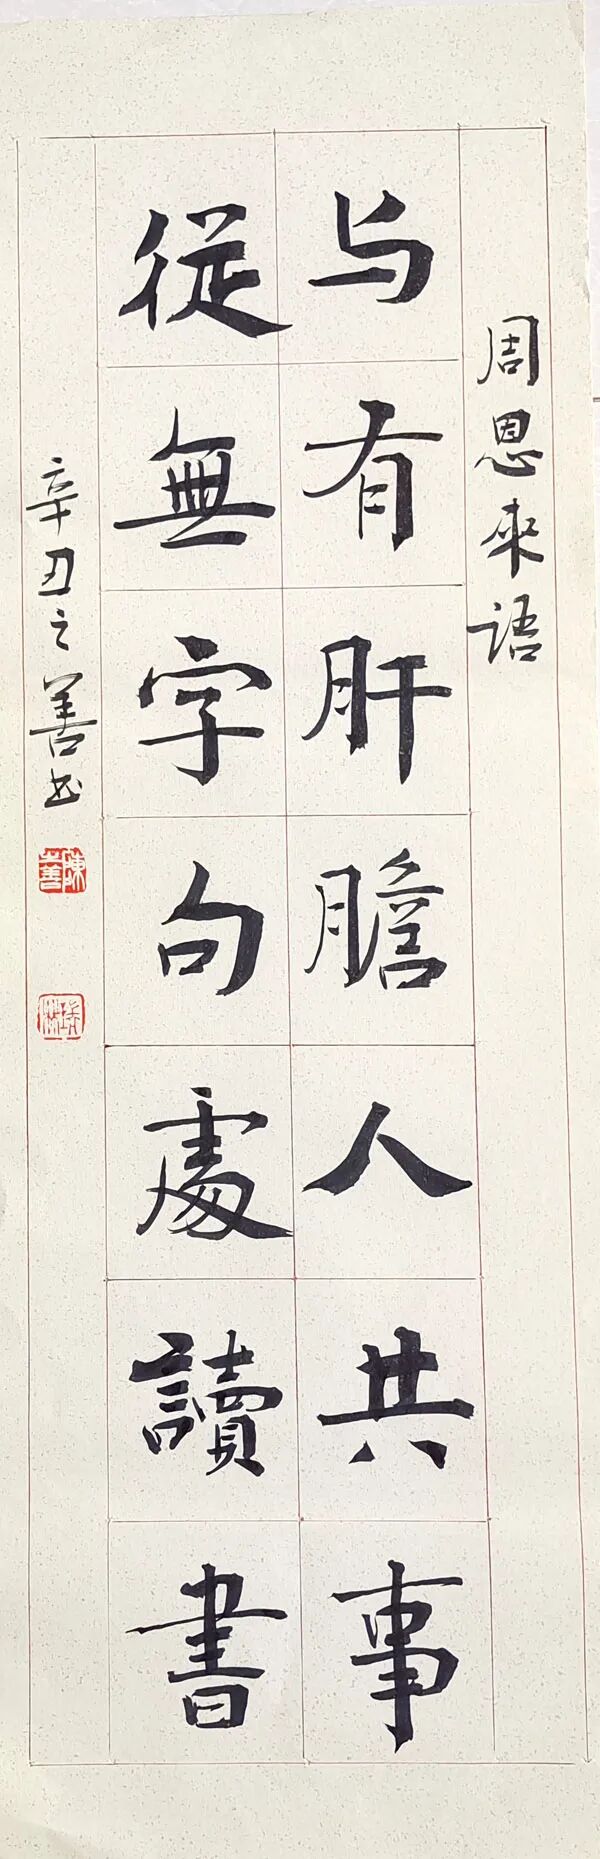 周恩来语
与有肝膽人共事
從無字句處讀書
辛丑之善书
陳善